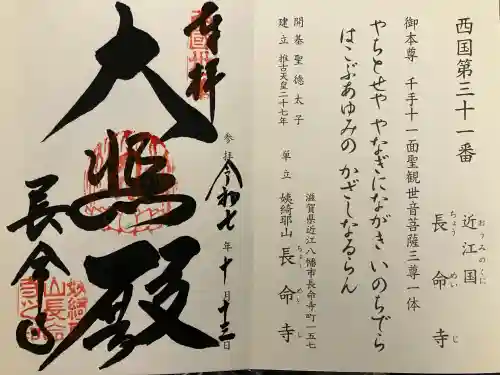 西国第三十一番
近江国
おうみのくに
長命寺
ちょうめいじ
御本尊 千手十一面聖観世音菩薩三尊一体
やちとせや やなぎにながき いのちでら
はこぶあゆみの かざしなるらん
開基 聖徳太子
建立 推古天皇二十七年
単立
滋賀県近江八幡市長命寺町一五七
姨綺耶山 長命寺
ちょうめいじ
奉拝
参拝 令和七年十月十三日
大悲殿
長命寺